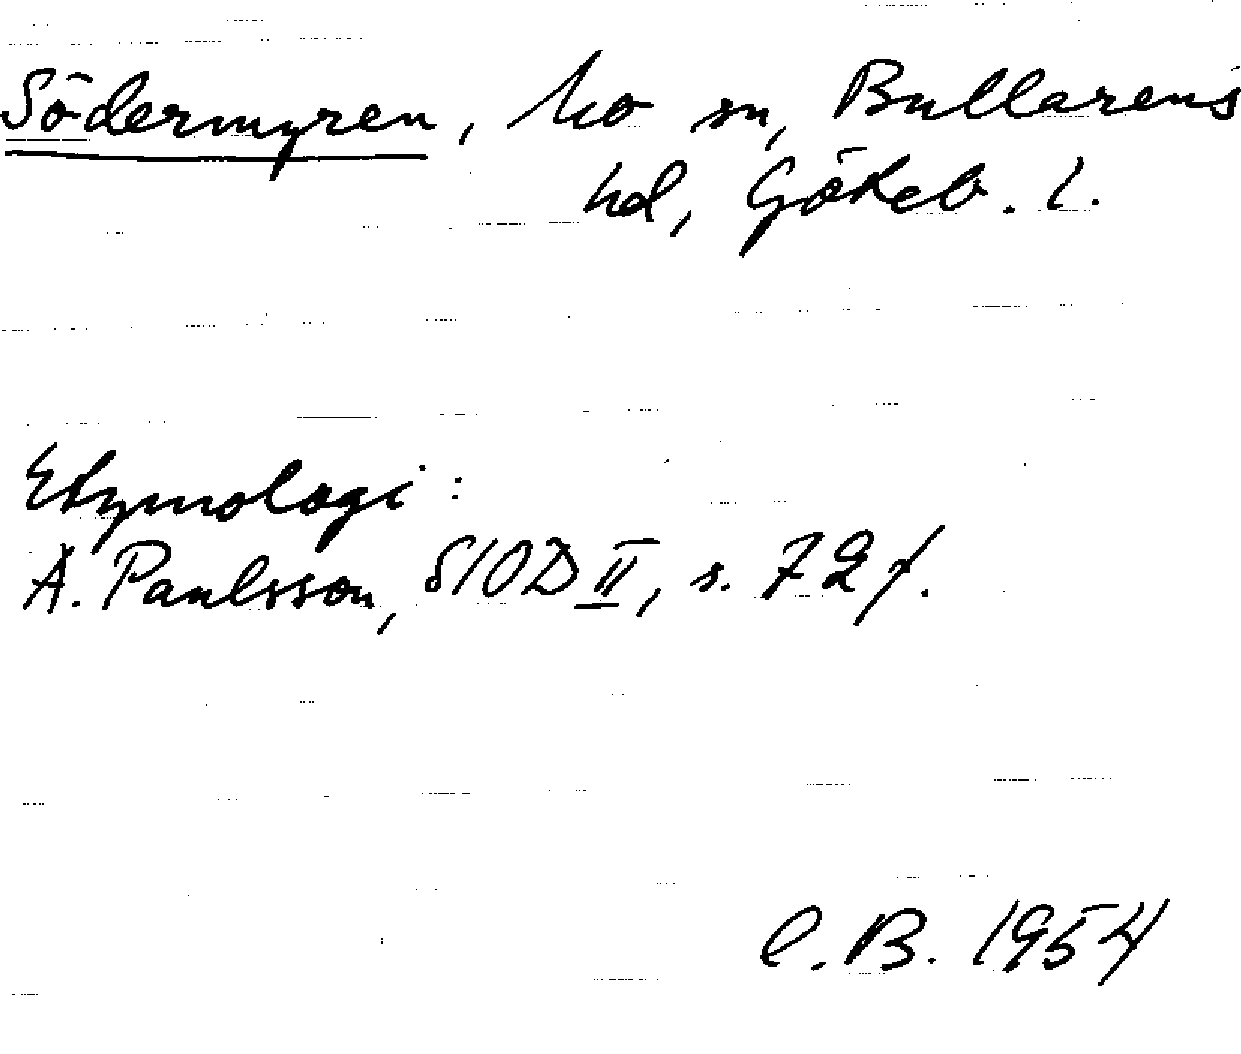 Södermyren, Mo sn, Bullarens
hd, Göteb. l.
Etymologi:
A. Paulsson, SIOD II, s. 72 f.
C. B. 1954